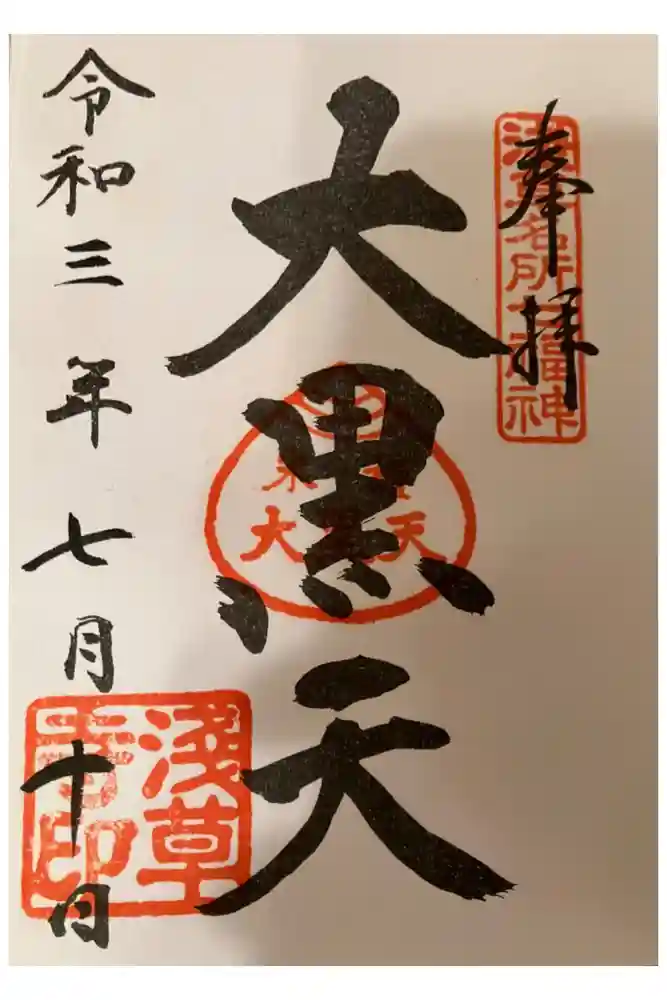 奉拝
浅草名所七福神
大黒天
大黒天
令和三年七月十日
浅草
寺印